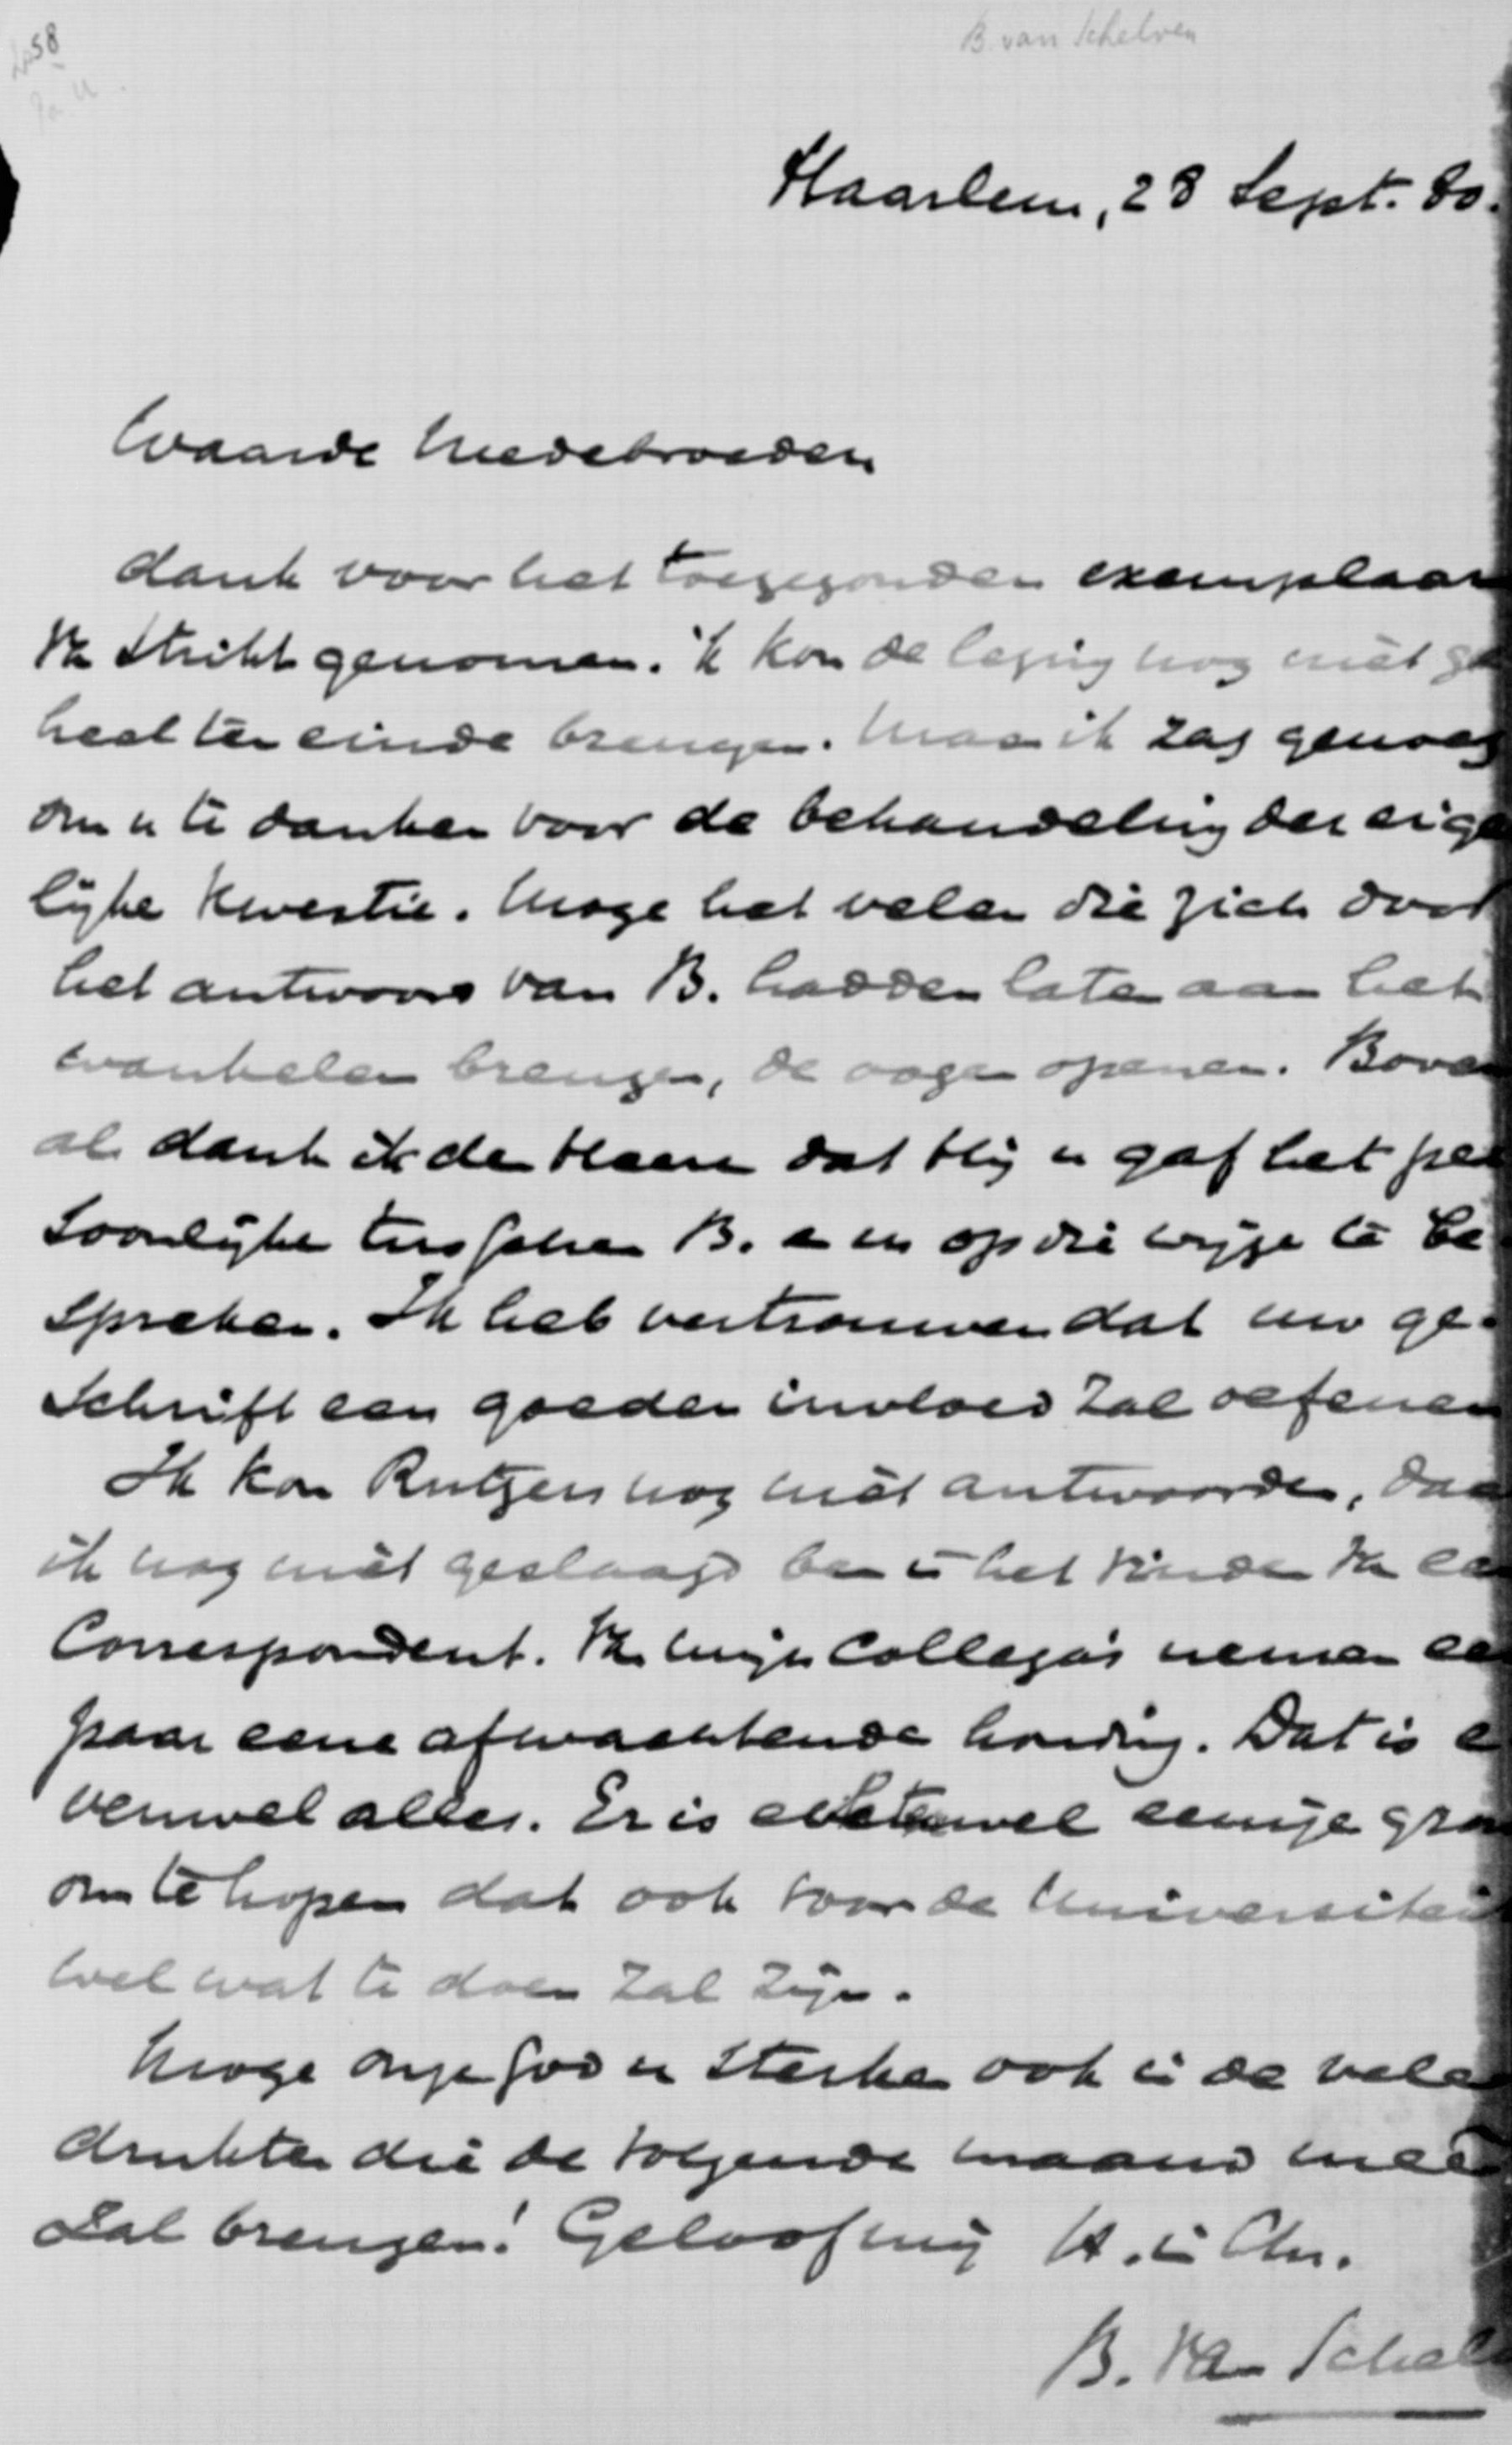 58
B. van Schelven
Haarlem, 28 Sept. 80.
Waarde Medebroeder
dank voor het toegezonden exemplaar
Van Strikt genomen. ik kon de lezing nog niet ge
heel ten einde brengen. Maar ik zag genoeg
om u te danken voor de behandeling der eige
lijke kwestie. Moge het velen die zich door
het antwoord van B. hadden laten aan het
wankelen brengen, de oogen openen. Boven
al dank ik den Heere dat Hij u gaf het per
soonlijke tusschen B. en u op die wijze te be
spreken. Ik heb vertrouwen dat uw ge-
schrift een goeden invloed zal oefenen
Ik kon Rutgers nog niet antwoorden, daar
ik nog niet geslaagd ben in het vinden van een
Correspondent. Van mijn Collega's nemen een
paar eene afwachtende houding. Dat is e
venwel alles. Er is wel eenige gron
om te hopen dat ook voor de Universiteit
wel wat te doen zal zijn.
Moge onze God u sterken ook in de vele
drukten die de volgende maand mee
zal brengen! Geloof mij t.t. in Chr.
B. van Schel